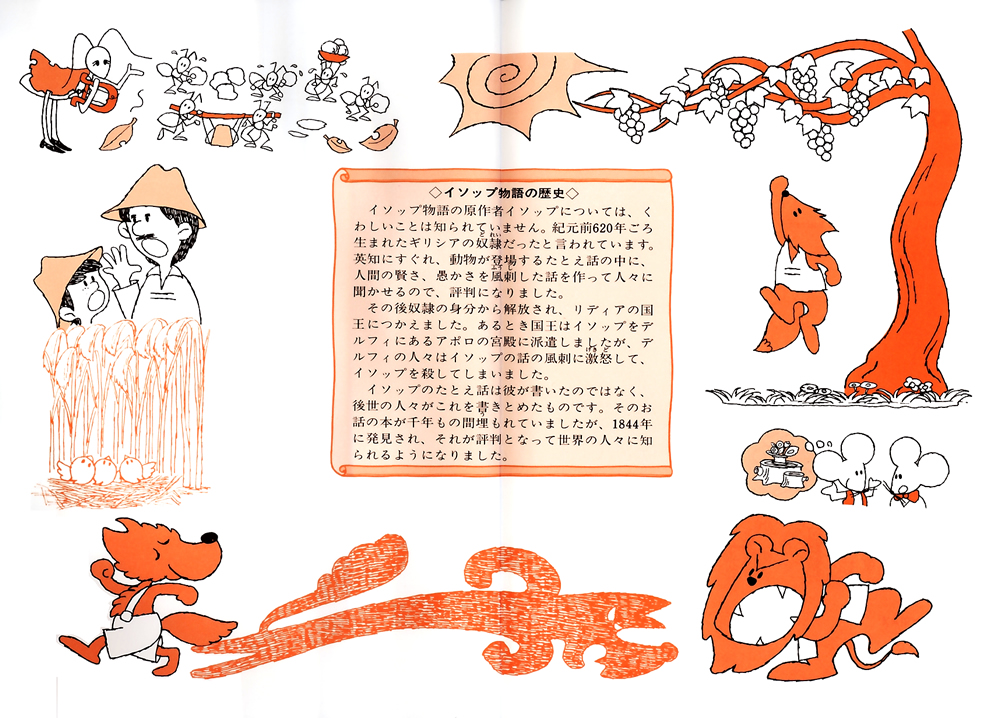 ◇イソップ物語の歴史◇
イソップ物語の原作者イソップについては、く
わしいことは知られていません。紀元前620年ごろ
生まれたギリシアの奴隷だったと言われています。
英知にすぐれ、動物が登場するたとえ話の中に、
人間の賢さ、愚かさを風刺した話を作って人々に
聞かせるので、評判になりました。
その後奴隷の身分から解放され、リディアの国
王につかえました。あるとき国王はイソップをデ
ルフィにあるアポロの宮殿に派遣しましたが、デ
ルフィの人々はイソップの話の風刺に激怒して、
イソップを殺してしまいました。
イソップのたとえ話は彼が書いたのではなく、
後世の人々がこれを書きとめたものです。そのお
話の本が千年もの間埋もれていましたが、1844年
に発見され、それが評判となって世界の人々に知
られるようになりました。